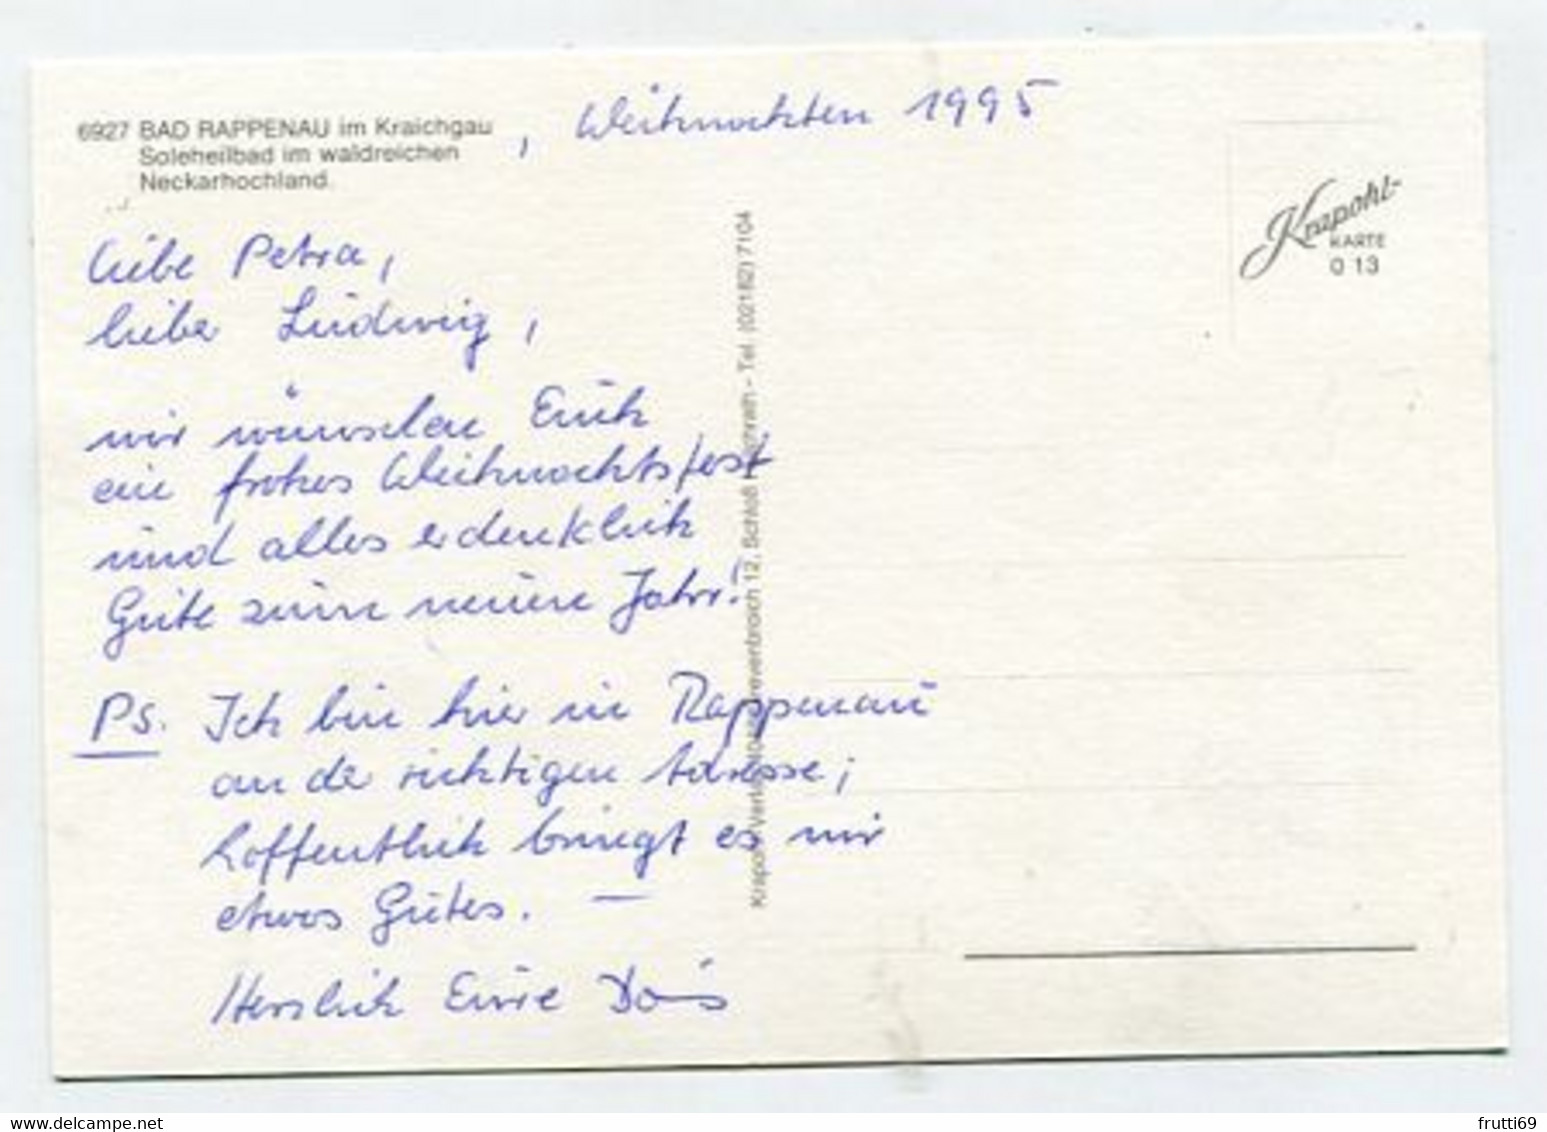 6927 BAD RAPPENAU im Kraichgau
Soleheilbad im waldreichen
Neckarhochland.
, Weihnachten 1995
Liebe Petra,
lieber Ludwig,
wir wünschen Euch
ein frohes Weihnachtsfest
und alles erdenklich
Gute zum neuen Jahr!
Ps. Ich bin hier in Rappenau
an der richtigen Adresse;
hoffentlich bringt es mir
etwas Gutes. —
Herzlich Eure Doris
Krapohl-Verlag, Grevenbroich 12, Schloß - Tel. (02182) 7104
Krapohl-
KARTE
Q 13
frutti69